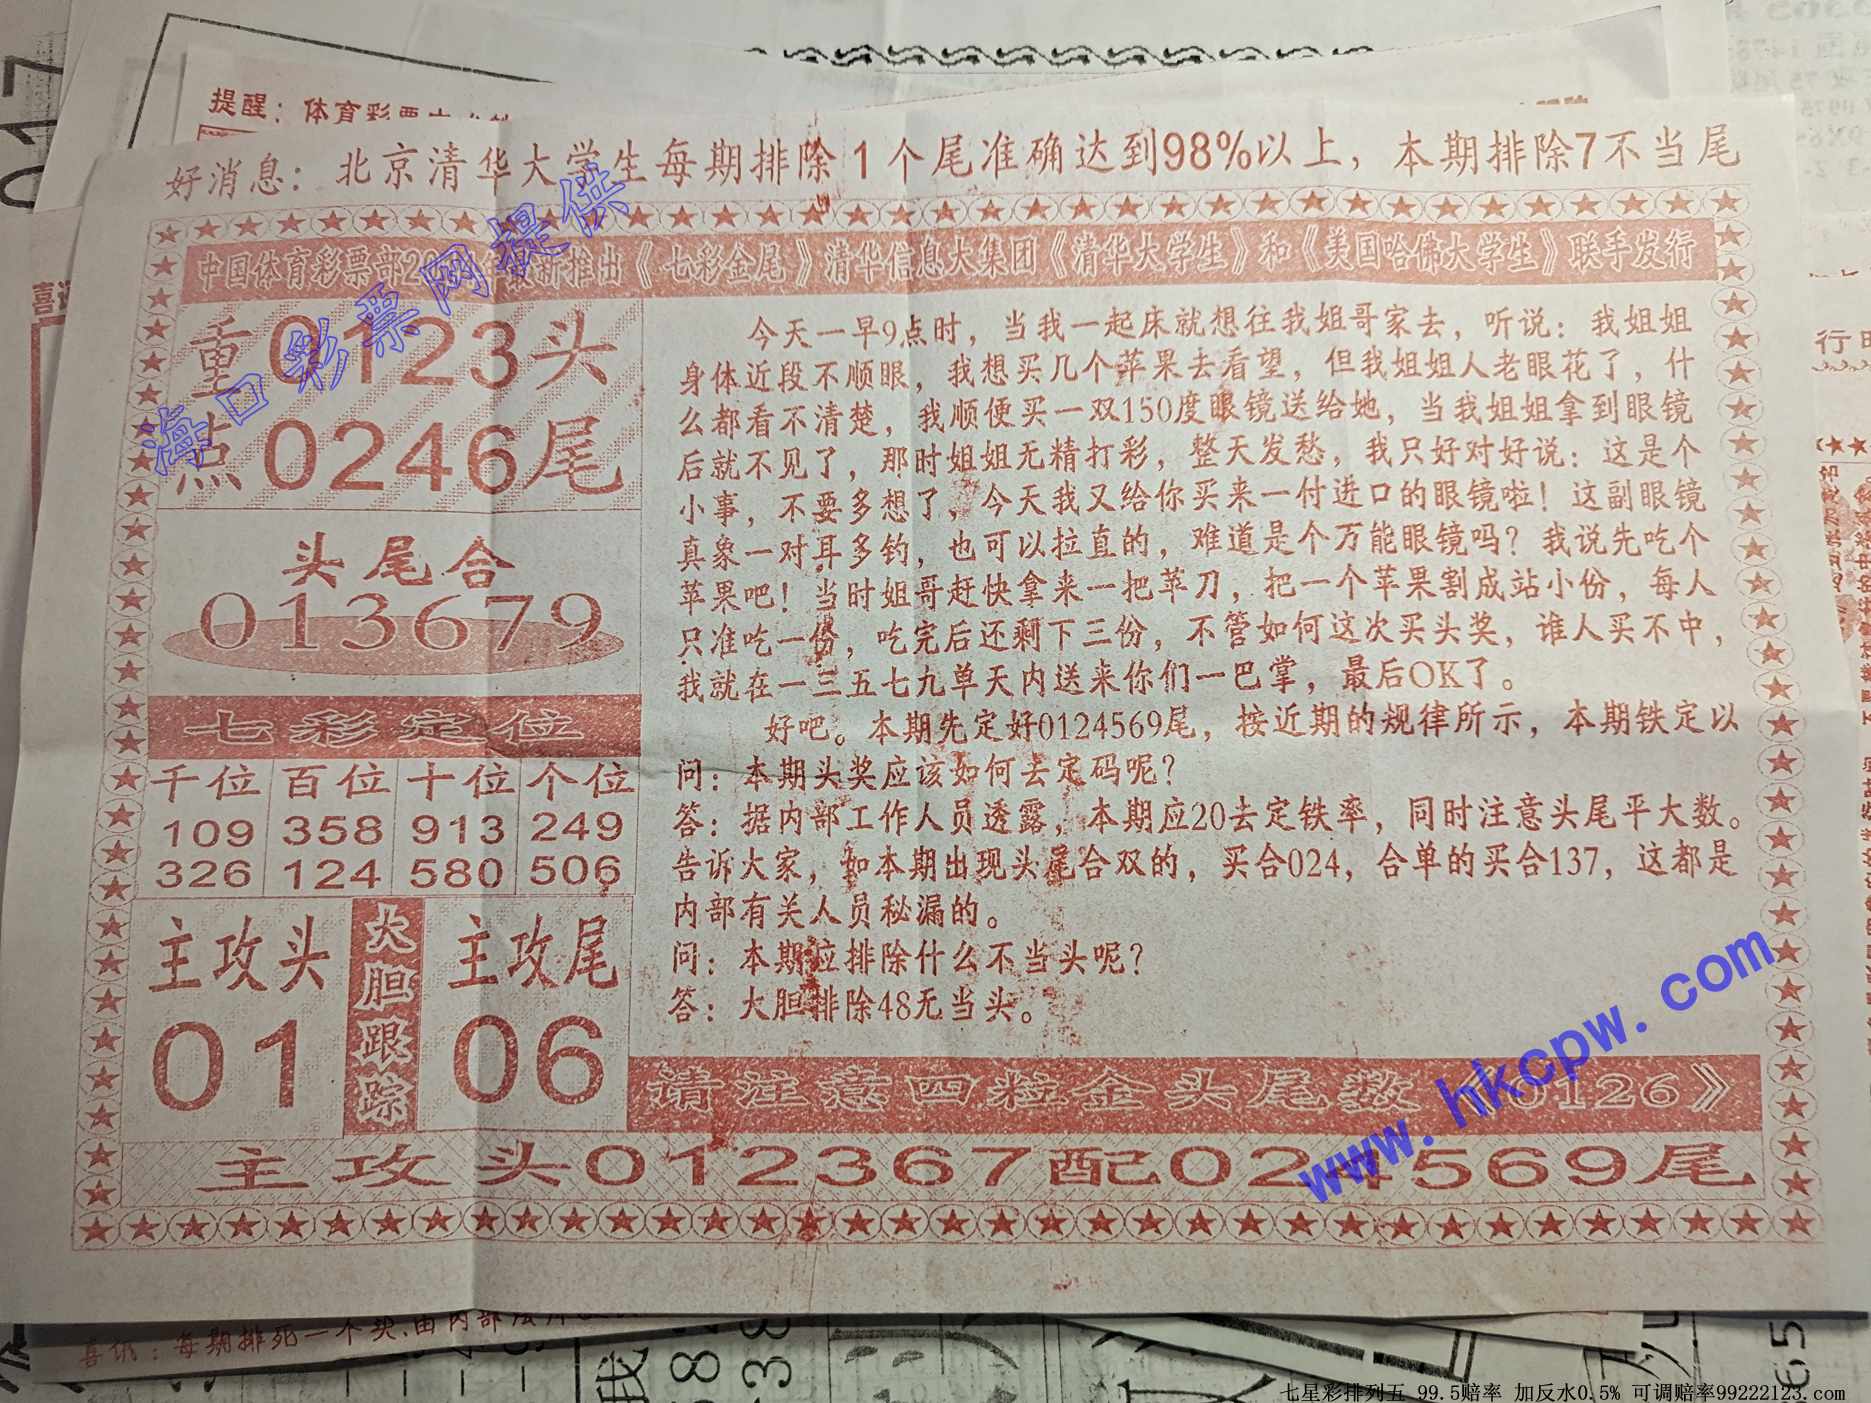 提醒：体育彩票
好消息：北京清华大学生每期排除1个尾准确达到98%以上，本期排除7不当尾
中国体育彩票部2 最新推出《七彩金尾》清华信息大集团《清华大学生》和《美国哈佛大学生》联手发行
重点
0123头
0246尾
头尾合
013679
七彩定位
千位 百位 十位 个位
109 358 913 249
326 124 580 506
主攻头 01
大胆跟踪
主攻尾 06
今天一早9点时，当我一起床就想往我姐哥家去，听说：我姐姐
身体近段不顺眼，我想买几个苹果去看望，但我姐姐人老眼花了，什
么都看不清楚，我顺便买一双150度眼镜送给她，当我姐姐拿到眼镜
后就不见了，那时姐姐无精打彩，整天发愁，我只好对好说：这是个
小事，不要多想了，今天我又给你买来一付进口的眼镜啦！这副眼镜
真象一对耳多钓，也可以拉直的，难道是个万能眼镜吗？我说先吃个
苹果吧！当时姐哥赶快拿来一把苹刀，把一个苹果割成站小份，每人
只准吃一份，吃完后还剩下三份，不管如何这次买头奖，谁人买不中，
我就在一三五七九单天内送来你们一巴掌，最后OK了。
好吧。本期先定好0124569尾，按近期的规律所示，本期铁定以
问：本期头奖应该如何去定码呢？
答：据内部工作人员透露，本期应20去定铁率，同时注意头尾平大数。
告诉大家，如本期出现头尾合双的，买合024，合单的买合137，这都是
内部有关人员秘漏的。
问：本期应排除什么不当头呢？
答：大胆排除48无当头。
请注意四粒金头尾数《0126》
主攻头012367配024569尾
海口彩票网提供
www.hkcpw.com
喜讯：每期排死一个头,由内部
七星彩排列五 99.5赔率 加反水0.5% 可调赔率99222123.com